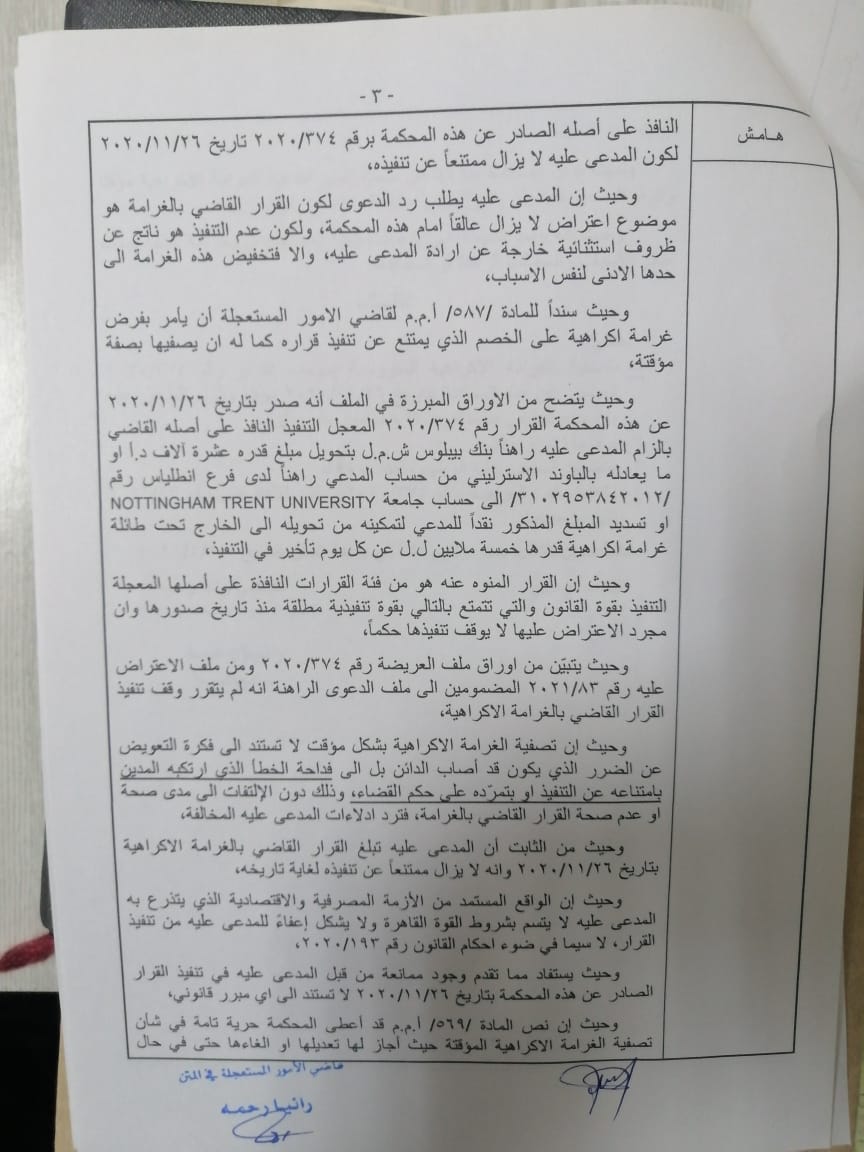 - ٣ -
هـامـش
النافذ على أصله الصادر عن هذه المحكمة برقم ٢٠٢٠/٣٧٤ تاريخ ٢٠٢٠/١١/٢٦
لكون المدعى عليه لا يزال ممتنعاً عن تنفيذه،
وحيث إن المدعى عليه يطلب رد الدعوى لكون القرار القاضي بالغرامة هو
موضوع اعتراض لا يزال عالقاً امام هذه المحكمة، ولكون عدم التنفيذ هو ناتج عن
ظروف استثنائية خارجة عن ارادة المدعى عليه، والا فتخفيض هذه الغرامة الى
حدها الادنى لنفس الاسباب،
وحيث سنداً للمادة /٥٨٧/ أ.م.م لقاضي الامور المستعجلة أن يأمر بفرض
غرامة اكراهية على الخصم الذي يمتنع عن تنفيذ قراره كما له ان يصفيها بصفة
مؤقتة،
وحيث يتضح من الاوراق المبرزة في الملف أنه صدر بتاريخ ٢٠٢٠/١١/٢٦
عن هذه المحكمة القرار رقم ٢٠٢٠/٣٧٤ المعجل التنفيذ النافذ على أصله القاضي
بالزام المدعى عليه راهناً بنك بيبلوس ش.م.ل بتحويل مبلغ قدره عشرة آلاف د.أ او
ما يعادله بالباوند الاسترليني من حساب المدعي راهناً لدى فرع انطلياس رقم
/٣١٠٢٩٥٣٨٤٢٠١٢/ الى حساب جامعة NOTTINGHAM TRENT UNIVERSITY
او تسديد المبلغ المذكور نقداً للمدعي لتمكينه من تحويله الى الخارج تحت طائلة
غرامة اكراهية قدرها خمسة ملايين ل.ل عن كل يوم تأخير في التنفيذ،
وحيث إن القرار المنوه عنه هو من فئة القرارات النافذة على أصلها المعجلة
التنفيذ بقوة القانون والتي تتمتع بالتالي بقوة تنفيذية مطلقة منذ تاريخ صدورها وان
مجرد الاعتراض عليها لا يوقف تنفيذها حكماً،
وحيث يتبيّن من اوراق ملف العريضة رقم ٢٠٢٠/٣٧٤ ومن ملف الاعتراض
عليه رقم ٢٠٢١/٨٣ المضمومين الى ملف الدعوى الراهنة انه لم يتقرر وقف تنفيذ
القرار القاضي بالغرامة الاكراهية،
وحيث إن تصفية الغرامة الاكراهية بشكل مؤقت لا تستند الى فكرة التعويض
عن الضرر الذي يكون قد أصاب الدائن بل الى فداحة الخطأ الذي ارتكبه المدين
بامتناعه عن التنفيذ او بتمرّده على حكم القضاء، وذلك دون الإلتفات الى مدى صحة
او عدم صحة القرار القاضي بالغرامة، فترد ادلاءات المدعى عليه المخالفة،
وحيث من الثابت أن المدعى عليه تبلغ القرار القاضي بالغرامة الاكراهية
بتاريخ ٢٠٢٠/١١/٢٦ وانه لا يزال ممتنعاً عن تنفيذه لغاية تاريخه،
وحيث إن الواقع المستمد من الأزمة المصرفية والاقتصادية الذي يتذرع به
المدعى عليه لا يتسم بشروط القوة القاهرة ولا يشكل إعفاءً للمدعى عليه من تنفيذ
القرار، لا سيما في ضوء احكام القانون رقم ٢٠٢٠/١٩٣،
وحيث يستفاد مما تقدم وجود ممانعة من قبل المدعى عليه في تنفيذ القرار
الصادر عن هذه المحكمة بتاريخ ٢٠٢٠/١١/٢٦ لا تستند الى اي مبرر قانوني،
وحيث إن نص المادة /٥٦٩/ أ.م.م قد أعطى المحكمة حرية تامة في شأن
تصفية الغرامة الاكراهية المؤقتة حيث أجاز لها تعديلها او الغاءها حتى في حال
قاضي الأمور المستعجلة في المتن
رانيا رحمه